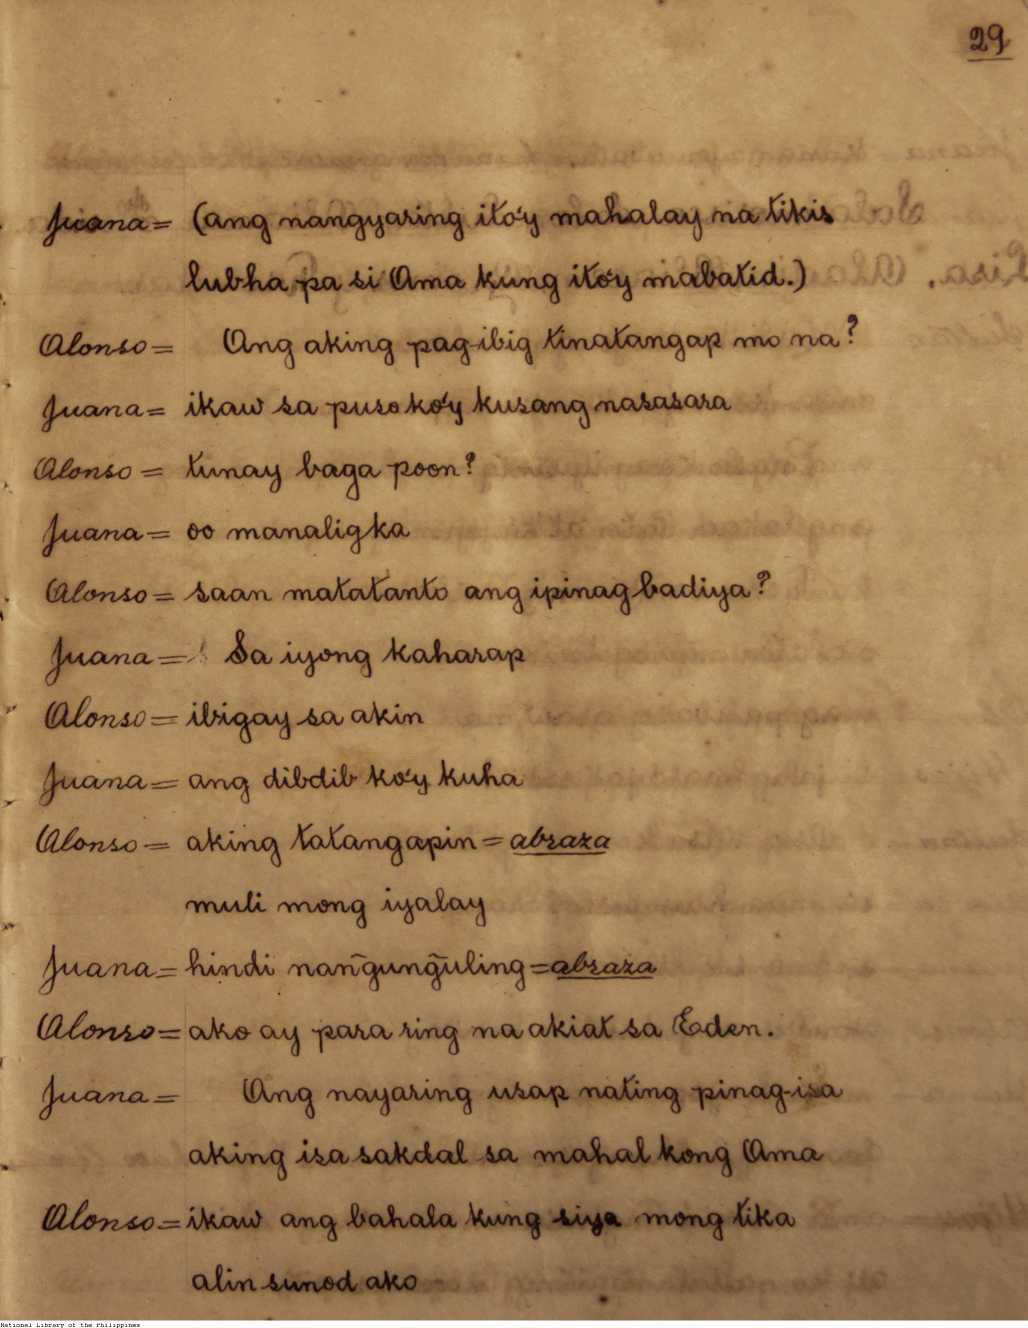 29
Juana = (ang nangyaring ito'y mahalay na tikis
lubha pa si Ama kung ito'y mabatid.)
Alonso = Ang aking pag-ibig tinatangap mo na?
Juana = ikaw sa puso ko'y kusang nasasara
Alonso = tunay baga poon?
Juana = oo manalig ka
Alonso = saan matatanto ang ipinagbadiya?
Juana = Sa iyong kaharap
Alonso = ibigay sa akin
Juana = ang dibdib ko'y kuha
Alonso = aking tatangapin = abraza
muli mong iyalay
Juana = hindi nang̃ung̃uling = abraza
Alonso = ako ay para ring na akiat sa Eden.
Juana = Ang nayaring usap nating pinag-isa
aking isa sakdal sa mahal kong Ama
Alonso = ikaw ang bahala kung siya mong tika
alin sunod ako
National Library of the Philippines